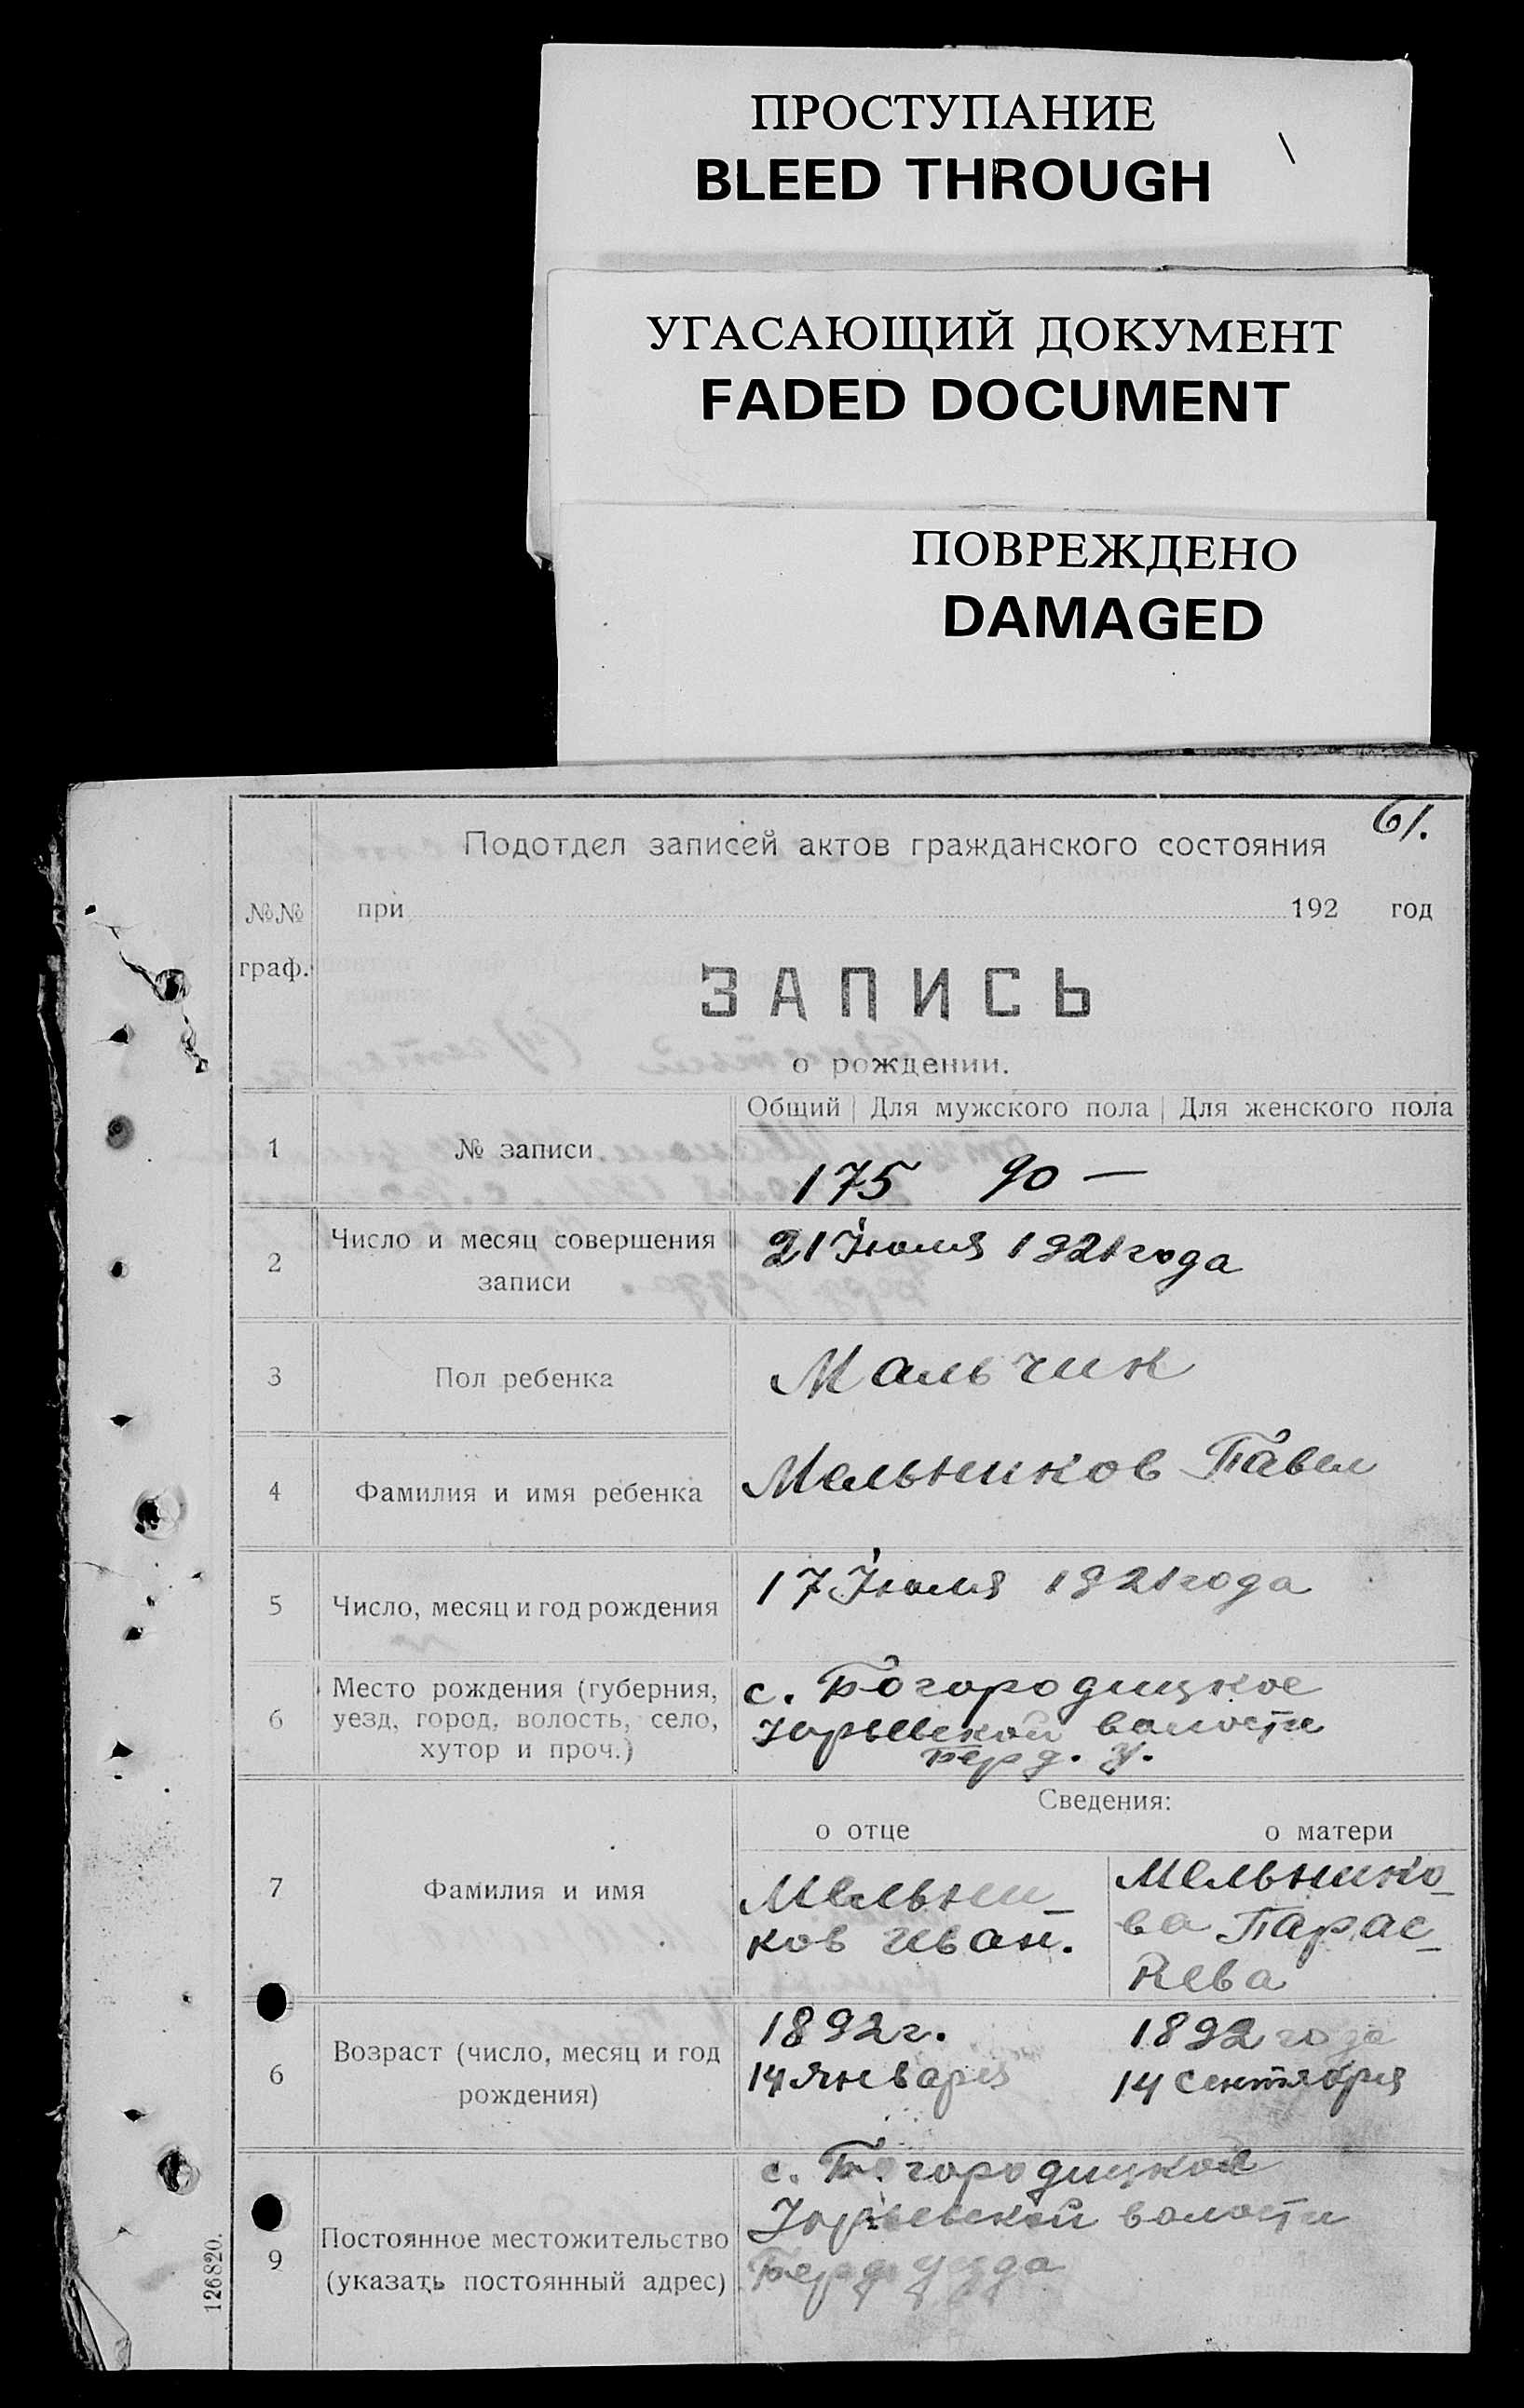 ПРОСТУПАНИЕ
BLEED THROUGH
УГАСАЮЩИЙ ДОКУМЕНТ
FADED DOCUMENT
ПОВРЕЖДЕНО
DAMAGED
61.
Подотдел записей актов гражданского состояния
№№ граф.
при 192 год
ЗАПИСЬ
о рождении.
Общий | Для мужского пола | Для женского пола
1 № записи. 175 90 —
2 Число и месяц совершения записи
21 Июля 1921 года
3 Пол ребенка
Мальчик
4 Фамилия и имя ребенка
Мельников Павел
5 Число, месяц и год рождения
17 Июля 1921 года
6 Место рождения (губерния,
уезд, город, волость, село,
хутор и проч.)
с. Богородицкое
Юрьевской волости
Берд. у.
Сведения:
о отце о матери
7 Фамилия и имя
Мельни-
ков Иван.
Мельнико-
ва Парас-
кева
6 Возраст (число, месяц и год
рождения)
1892 г.
14 января
1892 года
14 сентября
9 Постоянное местожительство
(указать постоянный адрес)
с. Богородицкое
Юрьевской волости
Берд уезда
126820.